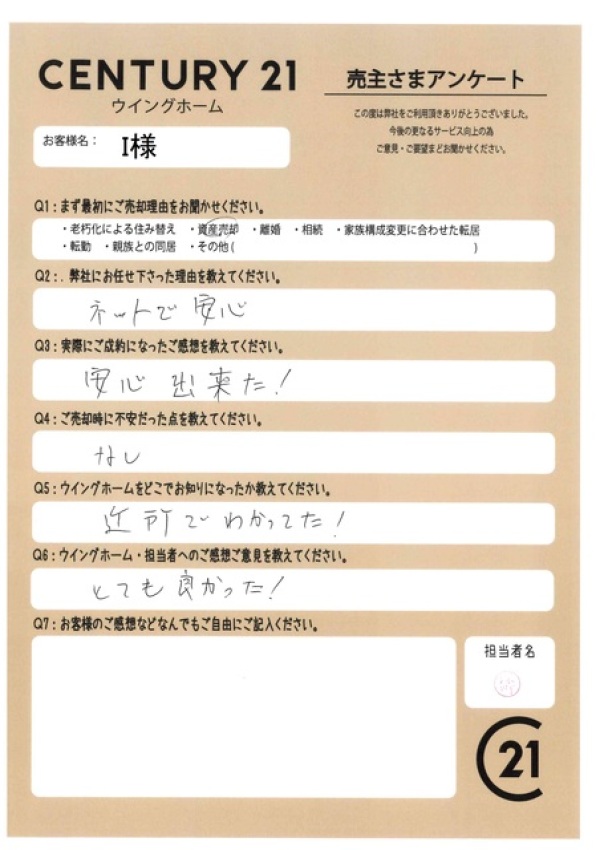 CENTURY 21
ウイングホーム
売主さまアンケート
この度は弊社をご利用頂きありがとうございました。
今後の更なるサービス向上の為
ご意見・ご要望までお聞かせください。
お客様名： I様
Q1：まず最初にご売却理由をお聞かせください。
・老朽化による住み替え ・資産売却 ・離婚 ・相続 ・家族構成変更に合わせた転居
・転勤 ・親族との同居 ・その他( )
Q2：. 弊社にお任せ下さった理由を教えてください。
ネットで安心
Q3：実際にご成約になったご感想を教えてください。
安心出来た！
Q4：ご売却時に不安だった点を教えてください。
なし
Q5：ウイングホームをどこでお知りになったか教えてください。
近所でわかってた！
Q6：ウイングホーム・担当者へのご感想ご意見を教えてください。
とても良かった！
Q7：お客様のご感想などなんでもご自由にご記入ください。
担当者名
C21